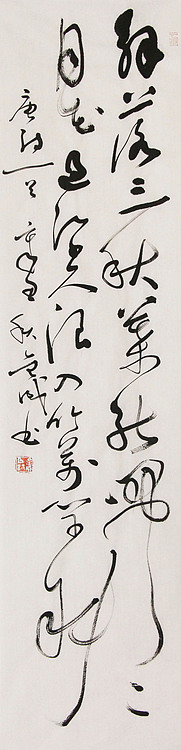 解落三秋葉能開二
月花過江千尺浪入竹萬竿斜
唐詩一首 秋 書